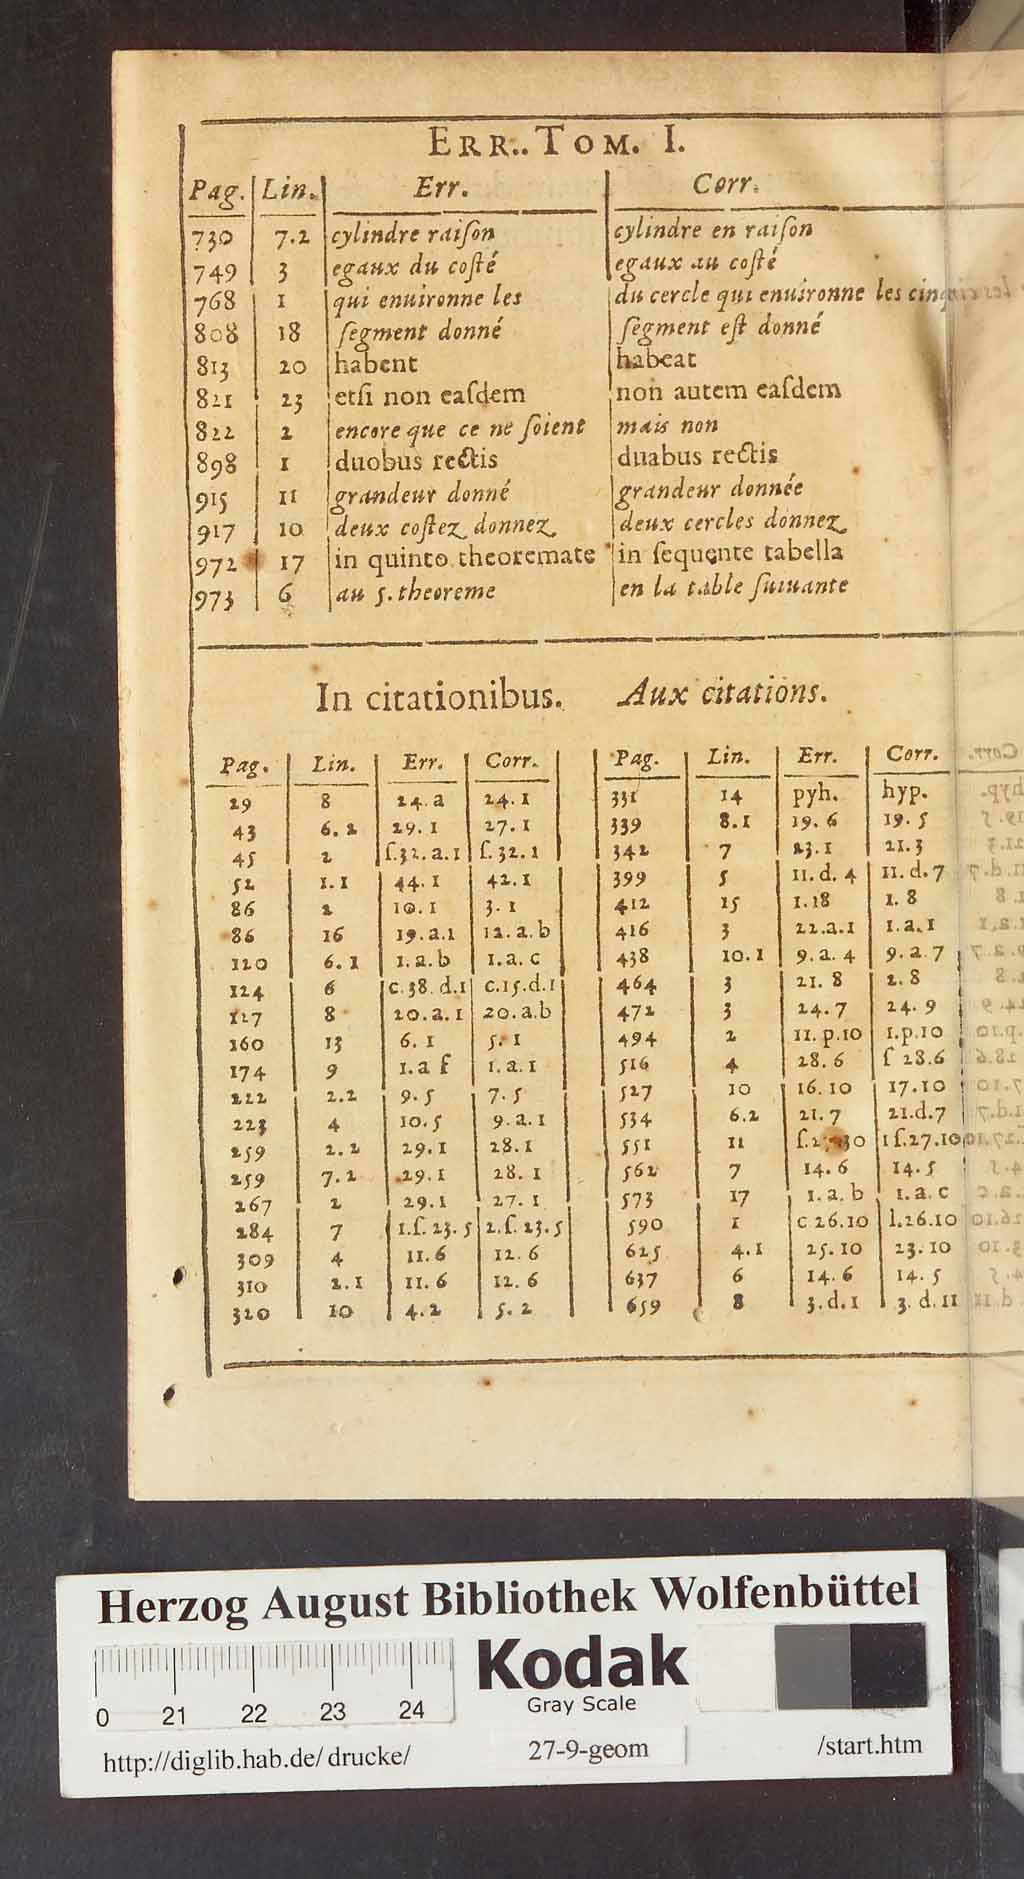 ERR.. TOM. I.
Pag. Lin. Err. Corr.
730 7.2 cylindre raiſon cylindre en raiſon
749 3 egaux du coſté egaux au coſté
768 1 qui enuironne les du cercle qui enuironne les cinq
808 18 ſegment donné ſegment eſt donné
813 20 habent habeat
821 23 etſi non eaſdem non autem eaſdem
822 2 encore que ce ne ſoient mais non
898 1 duobus rectis duabus rectis
915 11 grandeur donné grandeur donnée
917 10 deux coſtez donnez deux cercles donnez
972 17 in quinto theoremate in ſequente tabella
973 6 au 5. theoreme en la table ſuiuante
In citationibus. Aux citations.
Pag. Lin. Err. Corr. Pag. Lin. Err. Corr.
29 8 24. a 24. 1 331 14 pyh. hyp.
43 6. 2 29. 1 27. 1 339 8.1 19. 6 19. 5
45 2 ſ.32. a.1 ſ. 32. 1 342 7 23.1 21.3
52 1. 1 44. 1 42. 1 399 5 11. d. 4 11. d. 7
86 2 10. 1 3. 1 412 15 1.18 1. 8
86 16 19. a.1 12. a. b 416 3 22.a.1 1. a. 1
120 6. 1 1. a. b 1. a. c 438 10.1 9. a. 4 9. a. 7
124 6 c.38. d.1 c.15.d.1 464 3 21. 8 2. 8
127 8 20. a. 1 20. a.b 472 3 24. 7 24. 9
160 13 6. 1 5. 1 494 2 11. p.10 1.p.10
174 9 1. a f 1. a. 1 516 4 28. 6 ſ 28.6
222 2.2 9. 5 7. 5 527 10 16. 10 17.10
223 4 10. 5 9. a. 1 534 6.2 21. 7 21.d.7
259 2. 2 29. 1 28. 1 551 11 1 ſ.27.10
259 7. 2 29. 1 28. 1 562 7 14. 6 14. 5
267 2 29.1 27. 1 573 17 1. a. b 1. a. c
284 7 1.ſ. 23. 5 2.ſ. 23. 5 590 1 c 26.10 l.26.10
309 4 11. 6 12. 6 625 4.1 25. 10 23. 10
310 2. 1 11. 6 12. 6 637 6 14. 6 14. 5
320 10 4. 2 5. 2 659 8 3. d. 1 3. d. 11
Herzog August Bibliothek Wolfenbüttel
Kodak
Gray Scale
0 21 22 23 24
http://diglib.hab.de/ drucke/ 27-9-geom /start.htm